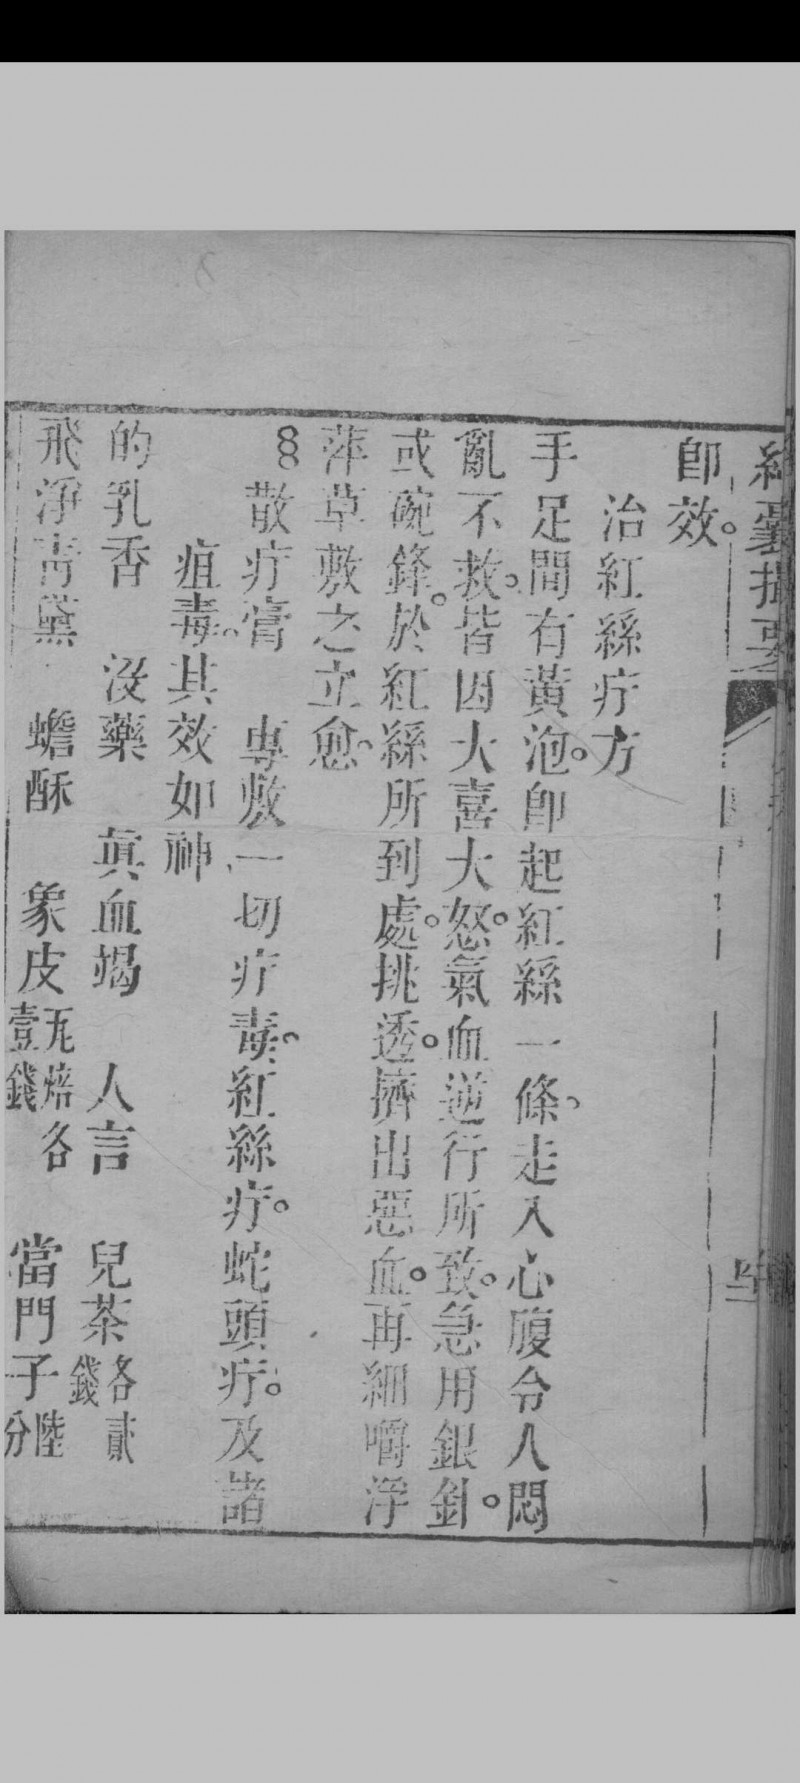 囊撮要
即效。
治紅絲疔方
手足間有黃泡。即起紅絲一條。走入心腹令人悶
亂不救。皆因大喜大怒。氣血逆行所致。急用銀針。
或碗鋒。於紅絲所到處。挑透。擠出惡血。再細嚼浮
萍草敷之立愈。
散疔膏 專敷一切疔毒。紅絲疔。蛇頭疔。及諸
疽毒。其效如神
的乳香 沒藥 真血竭 人言 兒茶各貳錢
飛淨青黛 蟾酥 象皮瓦焙各壹錢 當門子陸分